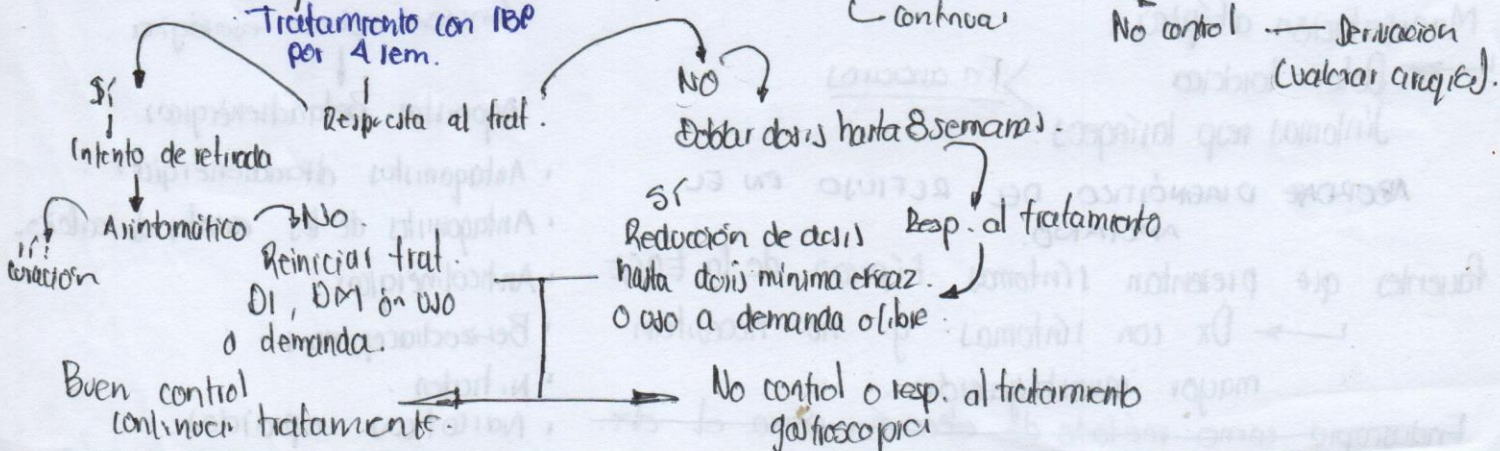 Tratamiento con IBP
por 4 sem.
continuar
No control
Derivación
(valorar cirugía).
Sí
Respuesta al trat.
NO
Doblar dosis hasta 8 semanas.
Intento de retirada
Asintomático
NO
sí
curación
Reinicial trat.
DI, DM ó n uso
a demanda.
sí
Reducción de dosis
hasta dosis minima eficaz.
O uso a demanda o libre.
Resp. al tratamiento
Buen control
continuar tratamiento
No control o resp. al tratamiento
gastroscopia